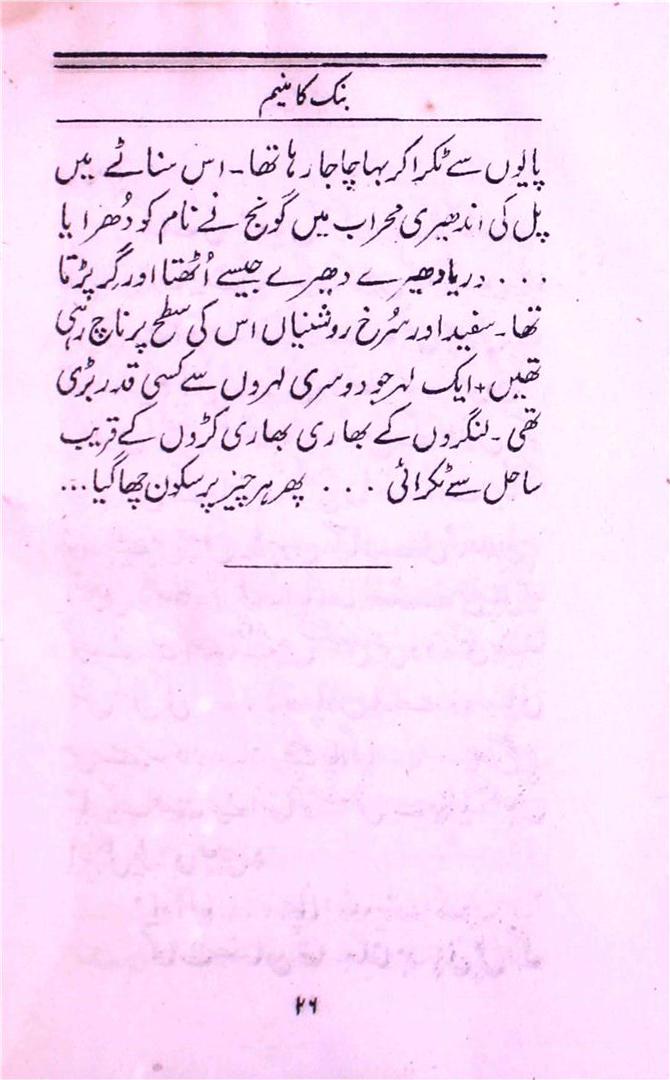 بنک کا منیم
پایوں سے ٹکرا کر بہا چا جا رہا تھا۔ اس سناٹے میں
پل کی اندھیری محراب میں گونج نے نام کو دُھرایا
... دریا دھیرے دھیرے جیسے اُٹھتا اور گِر پڑتا
تھا۔ سفید اور سُرخ روشنیاں اس کی سطح پر ناچ رہی
تھیں + ایک لہر جو دوسری لہروں سے کسی قدر بڑی
تھی۔ لنگروں کے بھاری بھاری کڑوں کے قریب
ساحل سے ٹکرائی ... پھر ہر چیز پر سکون چھا گیا...
۲۶